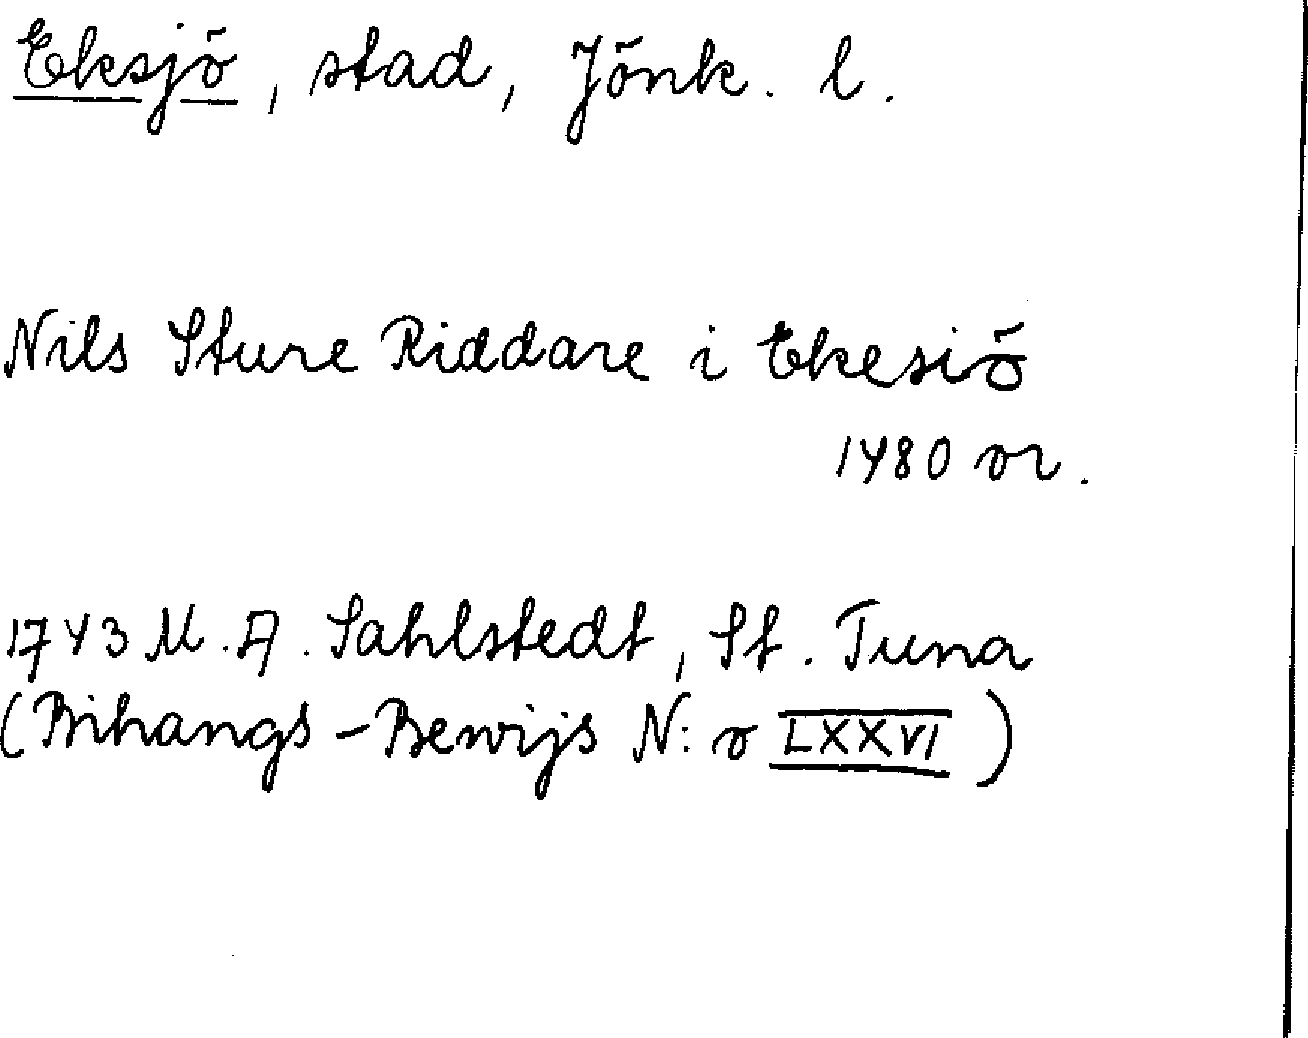 Eksjö, stad, Jönk. l.
Nils Sture Riddare i Ekesiö
1480 or.
1743 M. A. Sahlstedt, St. Tuna
(Bihangs-Bewijs N:o LXXVI)